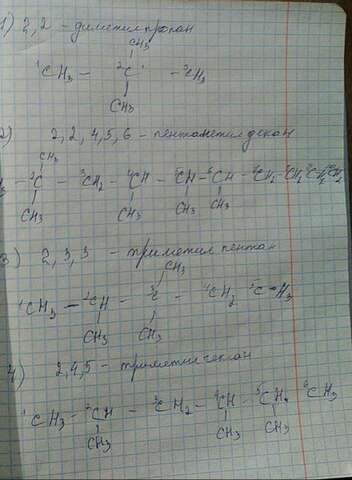 1) 2,2 - диметилпропан
CH3
¹CH3 - ²C - ³CH3
CH3
2) 2,2,4,5,6 - пентаметилдекан
CH3
²C - ³CH2 - ⁴CH - ⁵CH - ⁶CH - ⁷CH2 - ⁸CH2
CH3 CH3 CH3 CH3
3) 2,3,3 - триметилпентан
CH3
¹CH3 - ²CH - ³C - ⁴CH2 ⁵C-H3
CH3 CH3
4) 2,4,5 - триметилгексан
¹CH3 - ²CH - ³CH2 - ⁴CH - ⁵CH - ⁶CH3
CH3 CH3 CH3